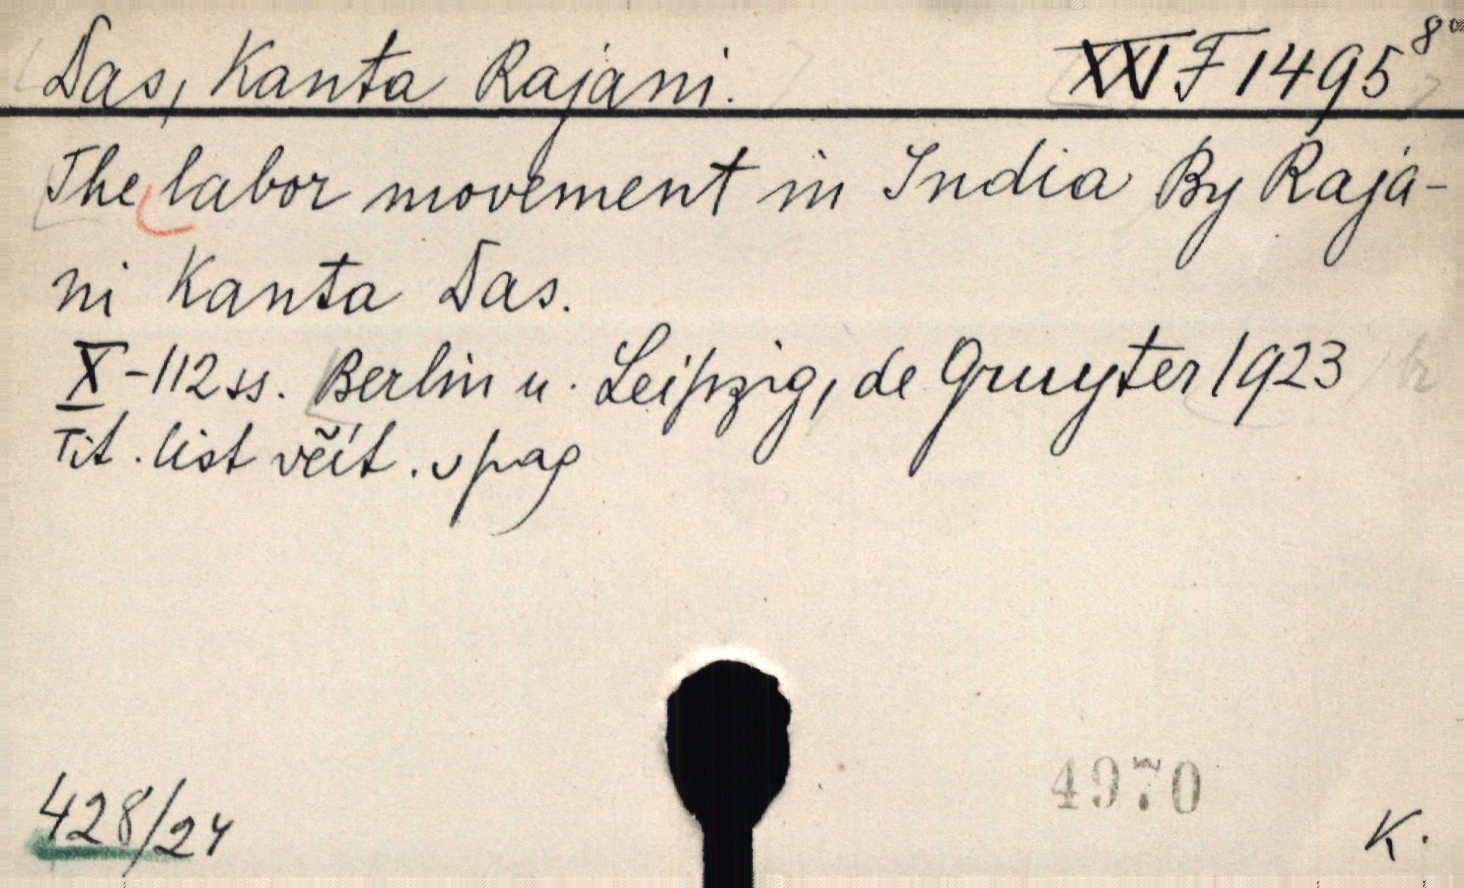 Das, Kanta Rajani. XXVI F 1495 8°
The labor movement in India By Raja-
ni Kanta Das.
X-112 ss. Berlin u. Leipzig, de Gruyter 1923
Tit. list včít. v pag
4970
428/24
K.